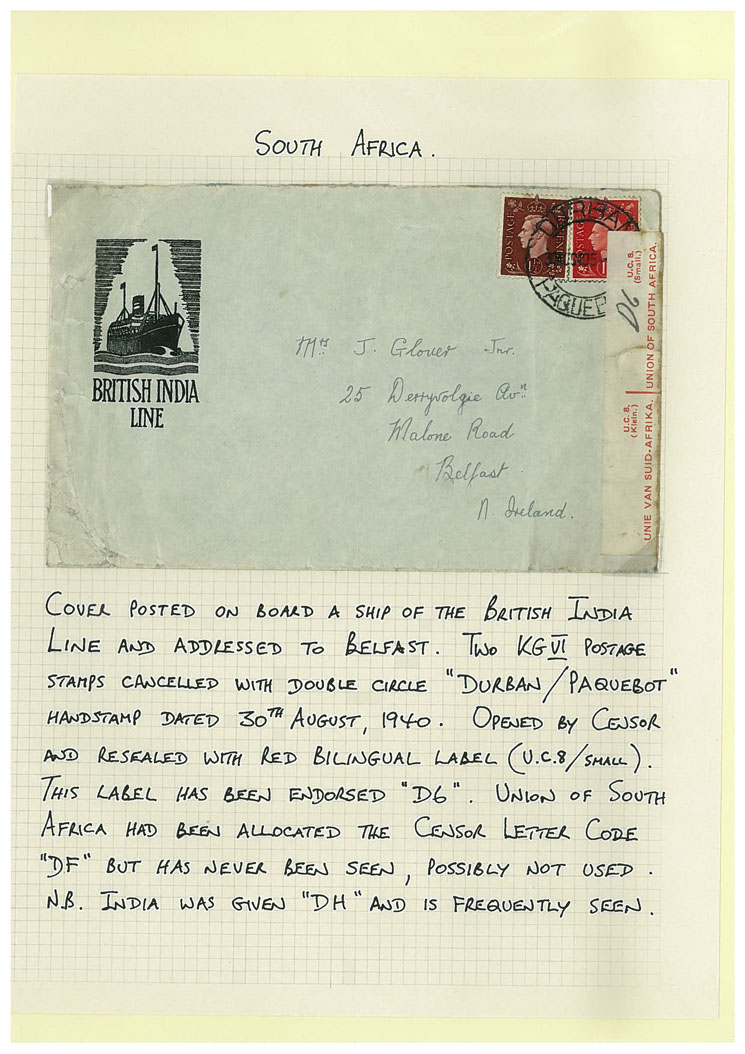 SOUTH AFRICA.
POSTAGE
POSTAGE
DURBAN
PAQUEB
BRITISH INDIA
LINE
Mrs J. Glover Jnr.
25 Derryvolgie Avn
Malone Road
Belfast
N. Ireland.
U.C.8.
(Small.)
UNION OF SOUTH AFRICA.
D6
U.C.8.
(Klein.)
UNIE VAN SUID-AFRIKA.
COVER POSTED ON BOARD A SHIP OF THE BRITISH INDIA
LINE AND ADDRESSED TO BELFAST. TWO KG VI POSTAGE
STAMPS CANCELLED WITH DOUBLE CIRCLE "DURBAN/PAQUEBOT"
HANDSTAMP DATED 30TH AUGUST, 1940. OPENED BY CENSOR
AND RESEALED WITH RED BILINGUAL LABEL (U.C.8/SMALL).
THIS LABEL HAS BEEN ENDORSED "D6". UNION OF SOUTH
AFRICA HAD BEEN ALLOCATED THE CENSOR LETTER CODE
"DF" BUT HAS NEVER BEEN SEEN, POSSIBLY NOT USED.
N.B. INDIA WAS GIVEN "DH" AND IS FREQUENTLY SEEN.